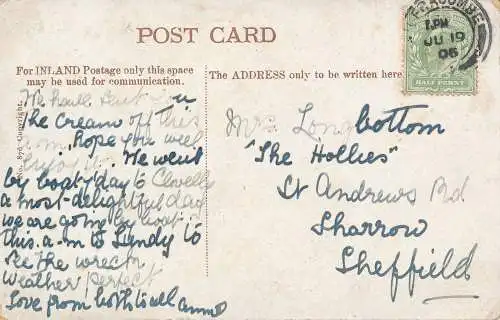 POST CARD
For INLAND Postage only this space
may be used for communication.
The ADDRESS only to be written here.
ILFRACOMBE
1.PM
JU 19
06
HALF PENNY
No. 876 Copyright.
We have sent you
the Cream off this
a.m. Hope you will
enjoy it. We went
by boat y'day to Clovelly
a most delightful day
we are going by boat
this a-m to Lundy to
see the wreck
Weather perfect
Love from both to all
Mrs Longbottom
"The Hollies"
St Andrews Rd
Sharrow
Sheffield